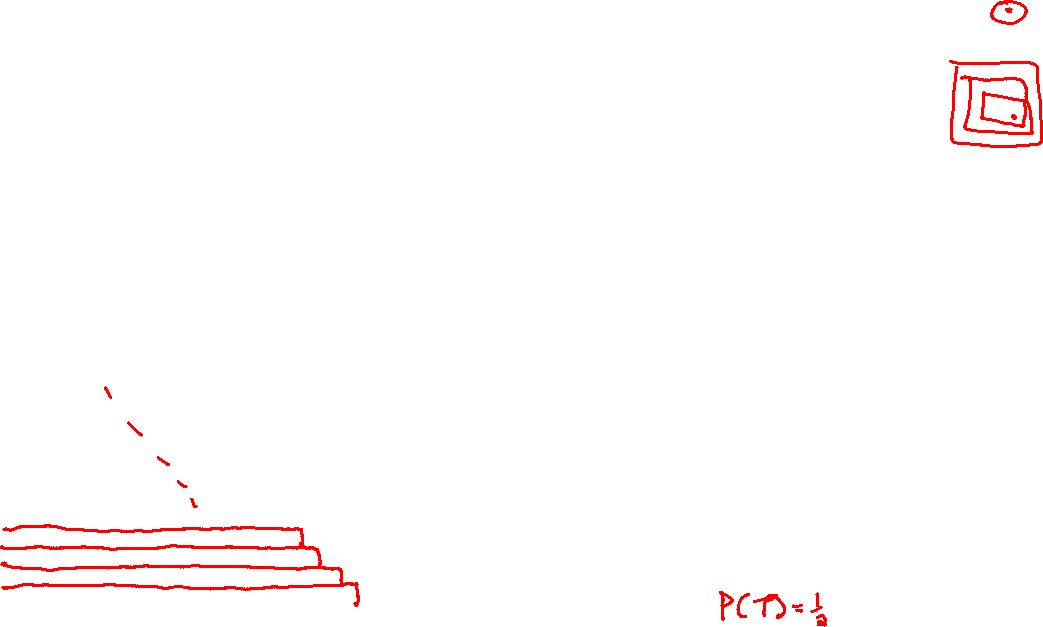 P(T) = 1/2